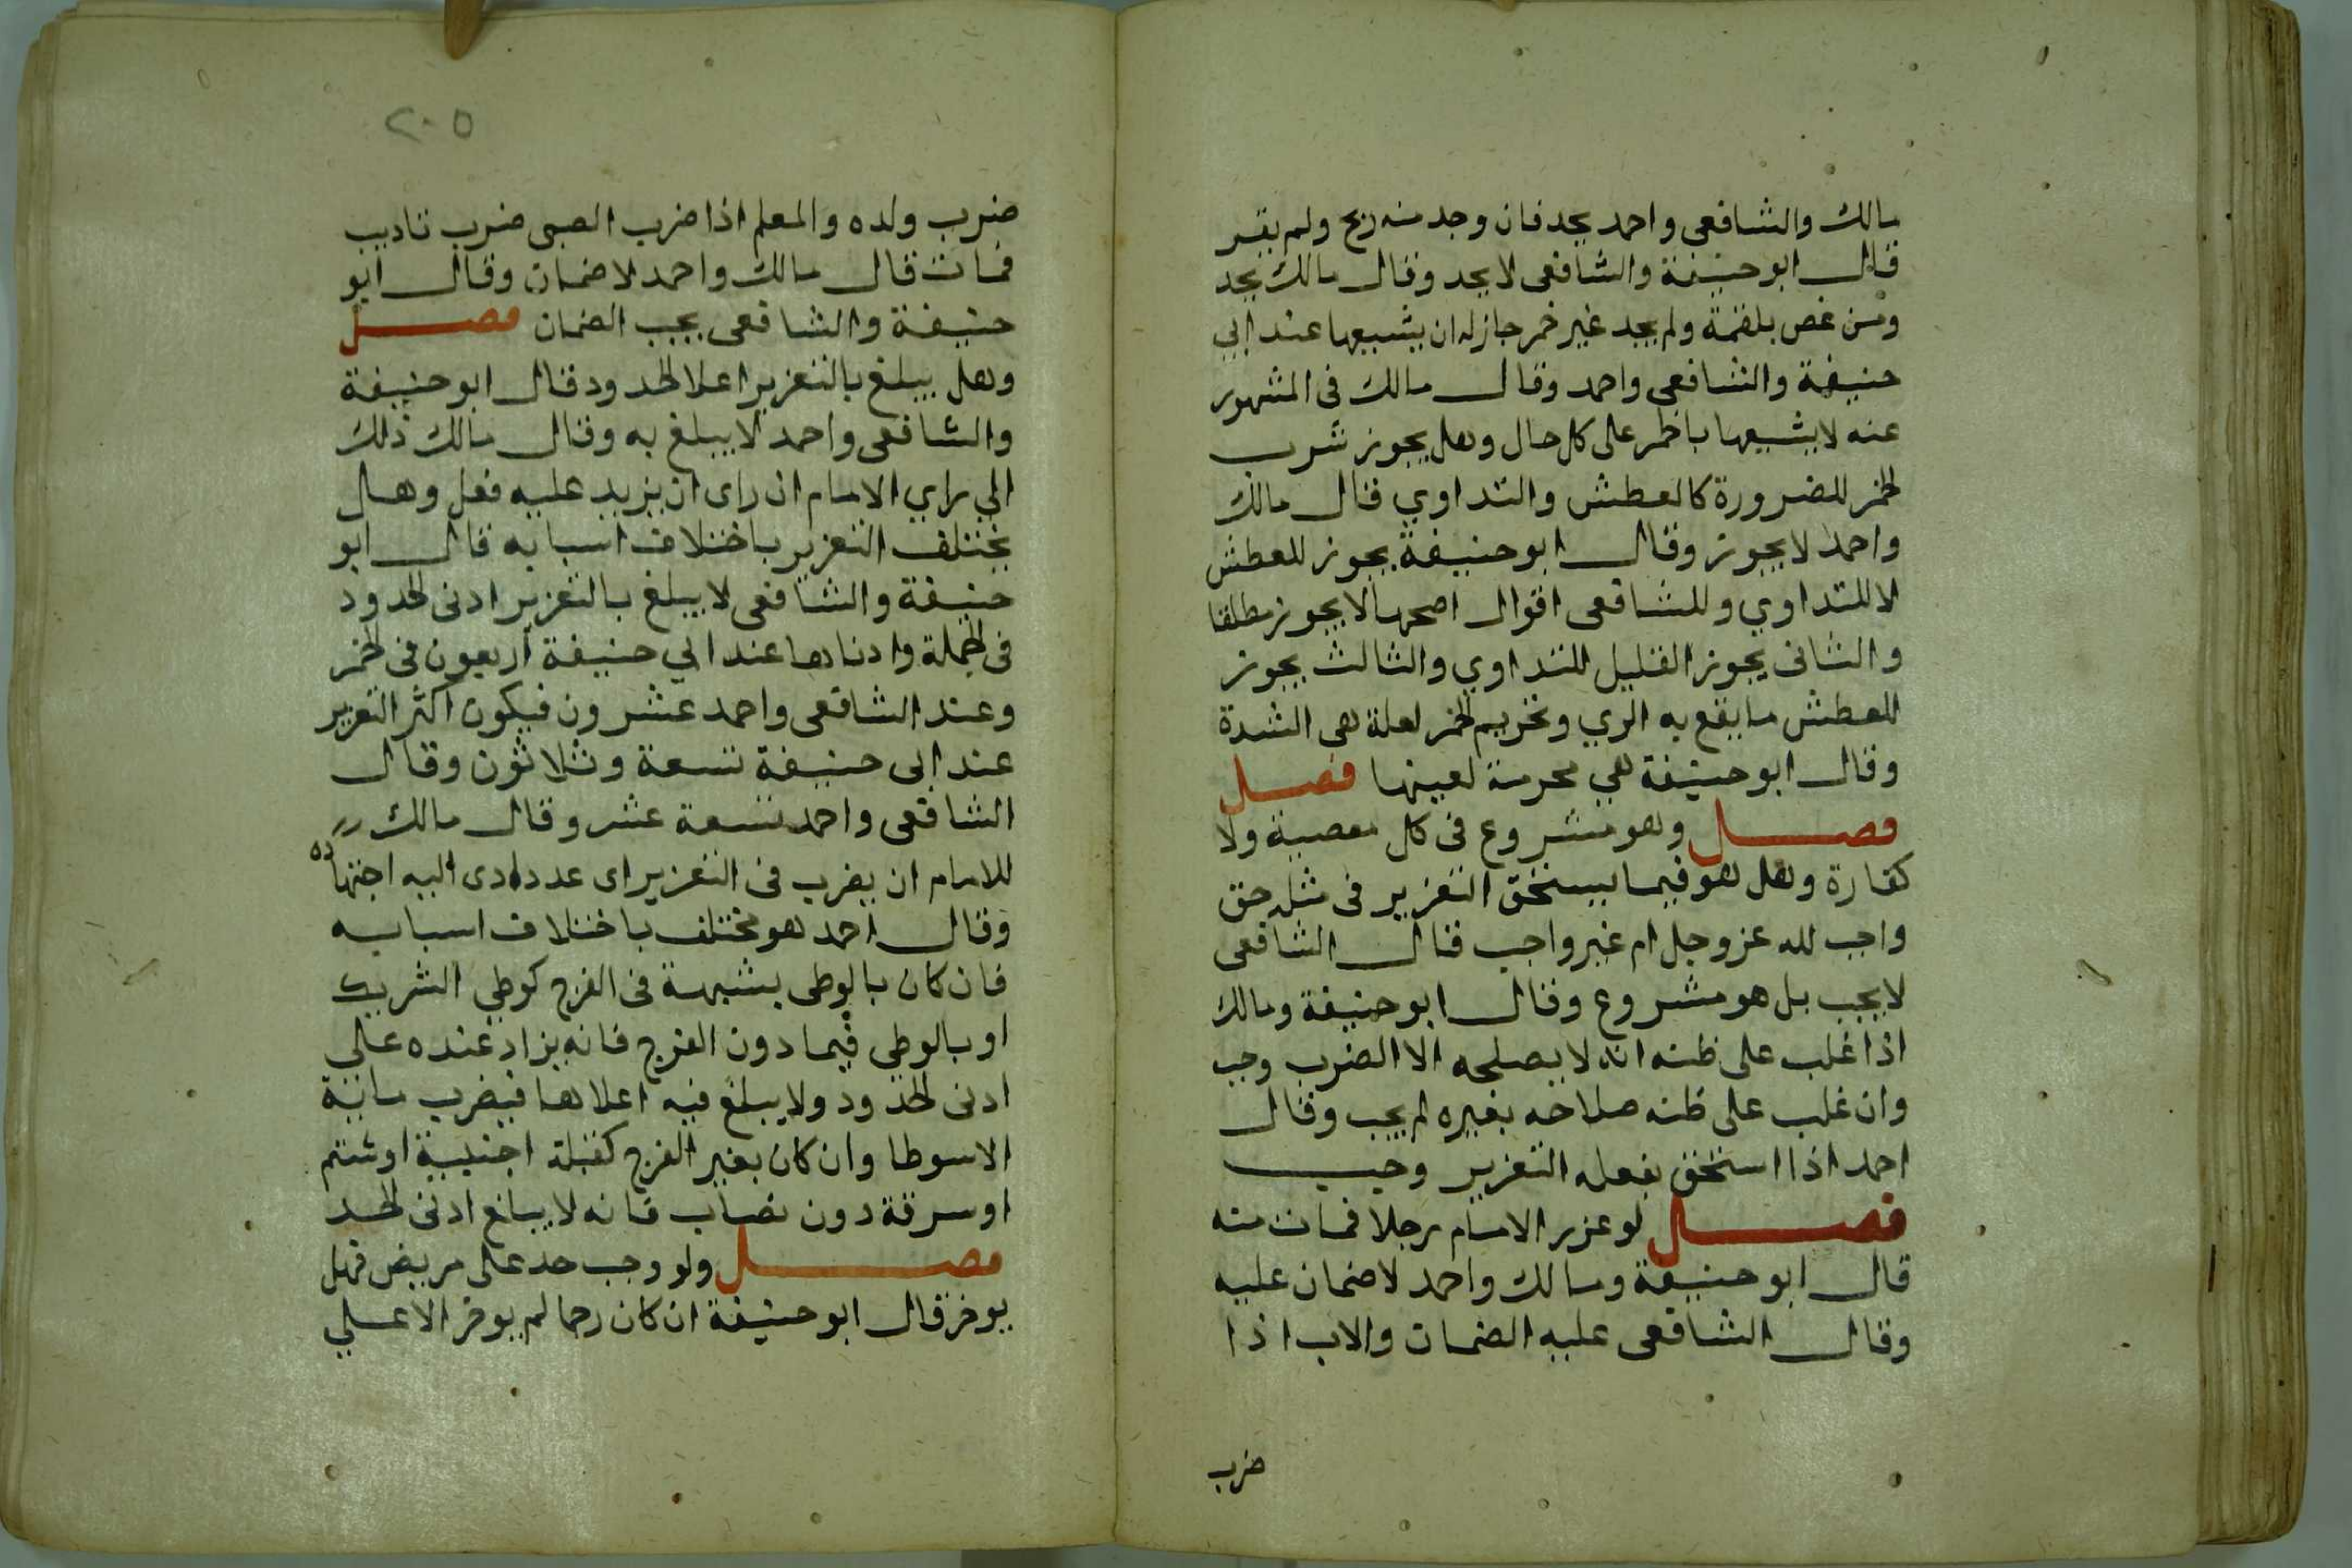 مالك والشافعى واحمد يحد فان وجد منه ريح ولم يقر
قال ابو حنيفة والشافعى لا يحد وقال مالك يحد
ومن غص بلقمة ولم يجد غير خمر جاز له ان يشيعها عند ابي
حنيفة والشافعى واحمد وقال مالك فى المشهور
عنه لا يشيعها بالخمر على كل حال وهل يجوز شرب
الخمر للضرورة كالعطش والتداوي قال مالك
واحمد لا يجوز وقال ابو حنيفة يجوز للعطش
لا للتداوي وللشافعى اقوال اصحها لا يجوز مطلقا
والثانى يجوز القليل للتداوي والثالث يجوز
للعطش ما يقع به الري وتحريم الخمر لعلة هى الشدة
وقال ابو حنيفة هي محرمة لعينها فصل
فصل وهو مشروع فى كل معصية ولا
كفارة وهل هو فيما يستحق التعزير فى مثله حق
واجب لله عز وجل ام غير واجب قال الشافعى
لا يجب بل هو مشروع وقال ابو حنيفة ومالك
اذا غلب على ظنه انه لا يصلحه الا الضرب وجب
وان غلب على ظنه صلاحه بغيره لم يجب وقال
احمد اذا استحق بفعله التعزير وجب
فصل لو عزر الامام رجلا فمات منه
قال ابو حنيفة ومالك واحمد لا ضمان عليه
وقال الشافعى عليه الضمان والاب اذا
ضرب
٢٠٥
ضرب ولده والمعلم اذا ضرب الصبى ضرب تاديب
فمات قال مالك واحمد لا ضمان وقال ابو
حنيفة والشافعى يجب الضمان فصل
وهل يبلغ بالتعزير اعلا الحدود قال ابو حنيفة
والشافعى واحمد لا يبلغ به وقال مالك ذلك
الي راي الامام ان راى ان يزيد عليه فعل وهل
يختلف التعزير باختلاف اسبابه قال ابو
حنيفة والشافعى لا يبلغ بالتعزير ادنى الحدود
فى الجملة وادناها عند ابي حنيفة اربعون فى الخمر
وعند الشافعى واحمد عشرون فيكون اكثر التعزير
عند ابى حنيفة تسعة وثلاثون وقال
الشافعى واحمد تسعة عشر وقال مالك
للامام ان يضرب فى التعزير اى عدد ادى اليه اجتهاده
وقال احمد هو مختلف باختلاف اسبابه
فان كان بالوطى بشبهة فى الفرج كوطي الشريك
او بالوطي فيما دون الفرج فانه يزاد عنده على
ادنى الحدود ولا يبلغ فيه اعلاها فيضرب ماية
الاسوطا وان كان بغير الفرج كقبلة اجنبية او شتم
او سرقة دون نصاب فانه لا يبلغ ادنى الحد
فصل ولو وجب حد على مريض فهل
يوخر قال ابو حنيفة ان كان رجما لم يوخر الاعلي